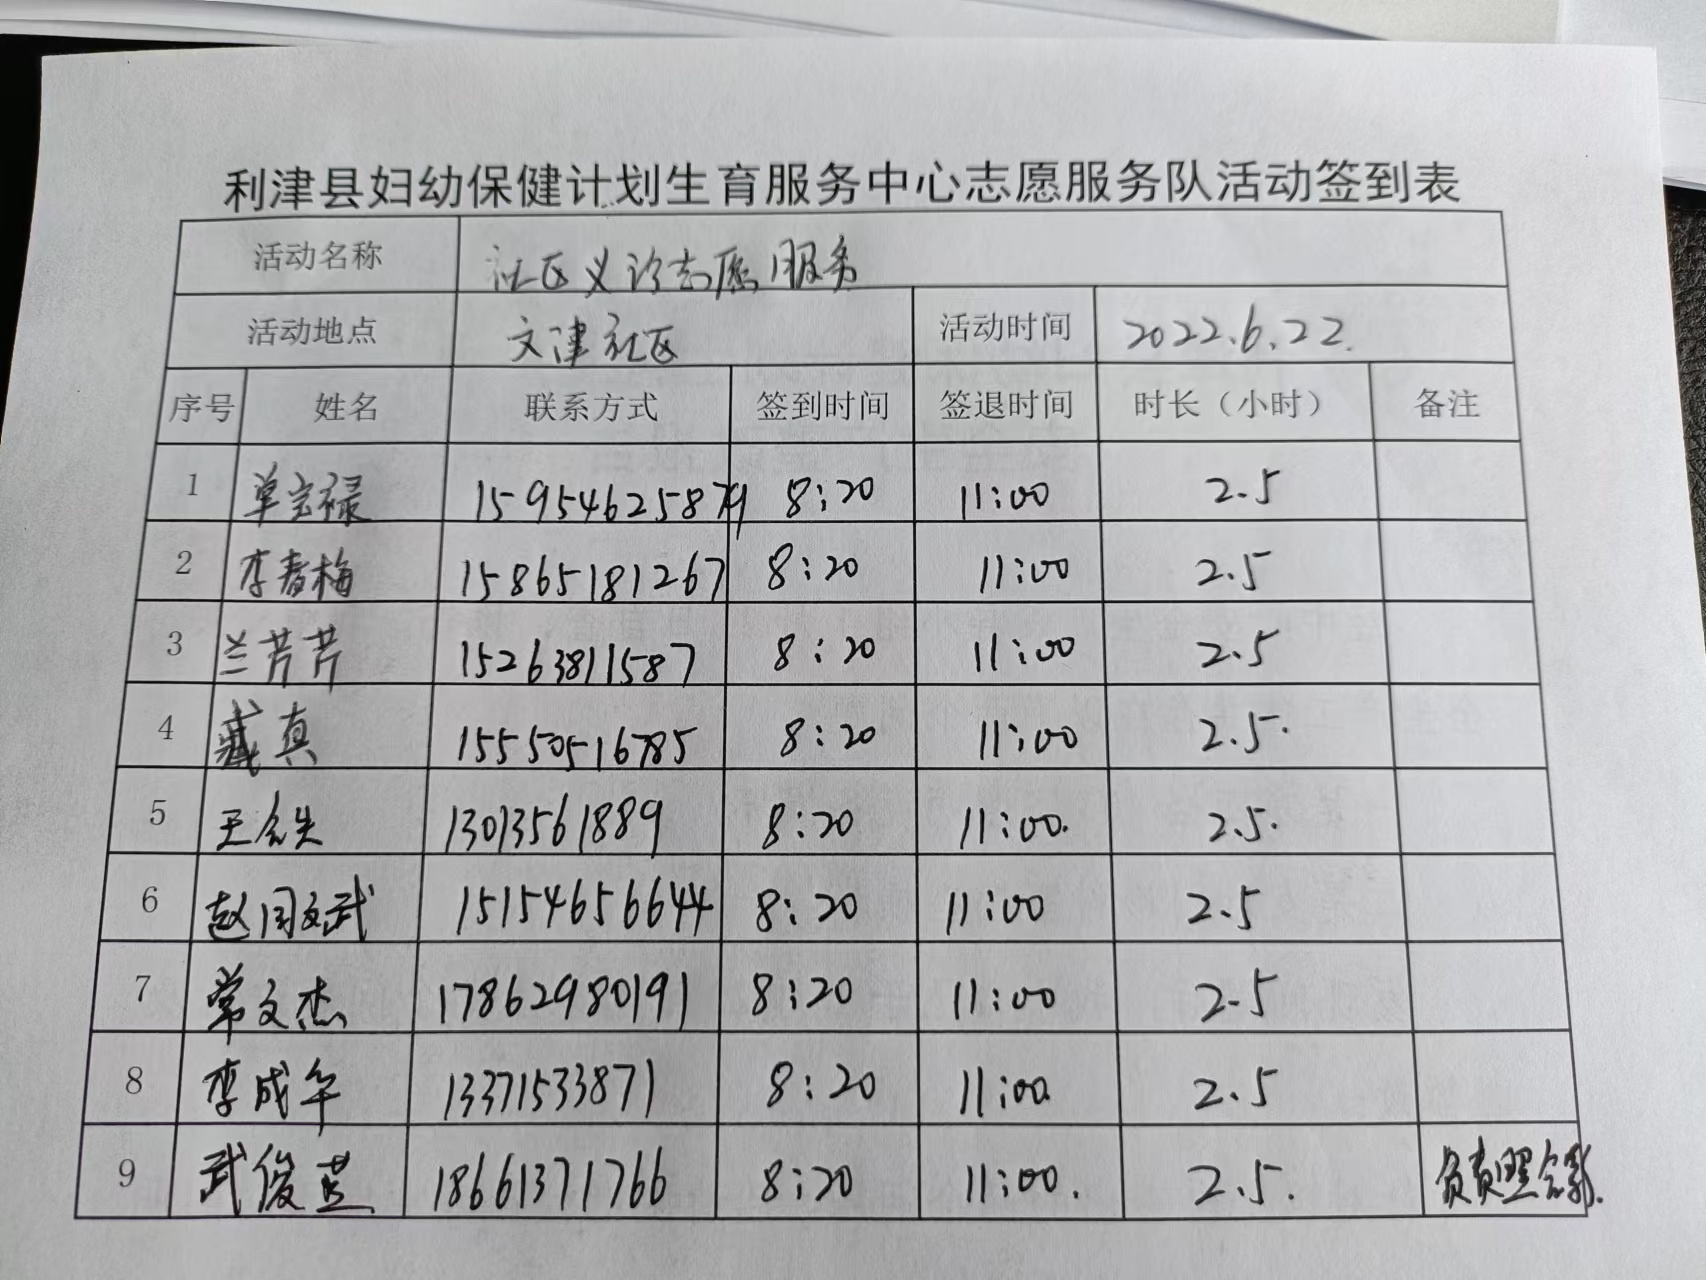 利津县妇幼保健计划生育服务中心志愿服务队活动签到表
活动名称 社区义诊志愿服务
活动地点 文津社区 活动时间 2022.6.22.
序号 姓名 联系方式 签到时间 签退时间 时长（小时） 备注
1 单宝禄 15954625879 8:20 11:00 2.5
2 李春梅 15865181267 8:20 11:00 2.5
3 兰芳芳 15263811587 8:20 11:00 2.5
4 臧真 15550516785 8:20 11:00 2.5.
5 13013561889 8:20 11:00. 2.5.
6 赵闫文武 15154656644 8:20 11:00 2.5
7 常文杰 17862980191 8:20 11:00 2.5
8 李成年 13371533871 8:20 11:00. 2.5
9 武俊英 18661371766 8:20 11:00. 2.5. 负责照合影.